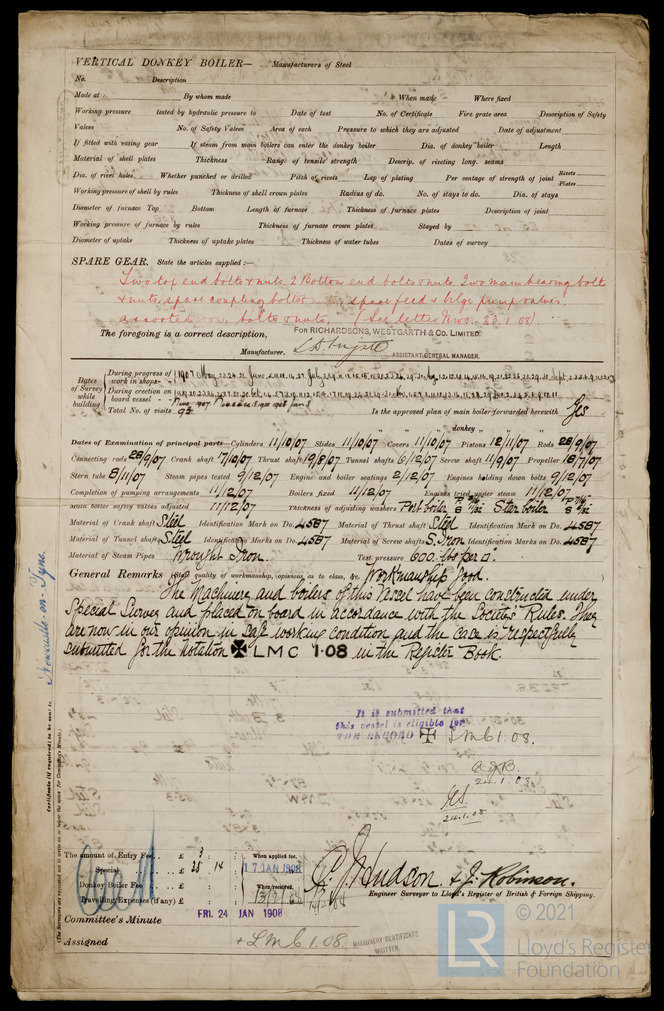 VERTICAL DONKEY BOILER— Manufacturers of Steel
No. Description
Made at By whom made When made Where fixed
Working pressure tested by hydraulic pressure to Date of test No. of Certificate Fire grate area Description of Safety
Valves No. of Safety Valves Area of each Pressure to which they are adjusted Date of adjustment
If fitted with easing gear If steam from main boilers can enter the donkey boiler Dia. of donkey boiler Length
Material of shell plates Thickness Range of tensile strength Descrip. of riveting long. seams
Dia. of rivet holes Whether punched or drilled Pitch of rivets Lap of plating Per centage of strength of joint Rivets
Plates
Working pressure of shell by rules Thickness of shell crown plates Radius of do. No. of stays to do. Dia. of stays
Diameter of furnace Top Bottom Length of furnace Thickness of furnace plates Description of joint
Working pressure of furnace by rules Thickness of furnace crown plates Stayed by
Diameter of uptake Thickness of uptake plates Thickness of water tubes Dates of survey
SPARE GEAR. State the articles supplied:—
Two top end bolts & nuts. 2 Bottom end bolts & nuts. Two main bearing bolts
& nuts, spare coupling bolts spare feed & bilge pump valves,
assorted bolts & nuts. (See letter 23.1.08)
The foregoing is a correct description,
FOR RICHARDSONS, WESTGARTH & Co. LIMITED
Manufacturer.
ASSISTANT GENERAL MANAGER.
Dates of Survey while building
During progress of work in shops-- 1907 May
During erection on board vessel ---
Total No. of visits 93 Is the approved plan of main boiler forwarded herewith Yes
" " " donkey " " "
Dates of Examination of principal parts—Cylinders 11/10/07 Slides 11/10/07 Covers 11/10/07 Pistons 12/11/07 Rods 28/9/07
Connecting rods 28/9/07 Crank shaft 7/10/07 Thrust shaft 19/8/07 Tunnel shafts 6/12/07 Screw shaft 11/9/07 Propeller 18/7/07
Stern tube 8/11/07 Steam pipes tested 9/12/07 Engine and boiler seatings 2/12/07 Engines holding down bolts 9/12/07
Completion of pumping arrangements 11/12/07 Boilers fixed 11/12/07 Engines tried under steam 11/12/07
Main boiler safety valves adjusted 11/12/07 Thickness of adjusting washers Port boiler Star boiler
Material of Crank shaft Steel Identification Mark on Do. 4587 Material of Thrust shaft Steel Identification Mark on Do. 4587
Material of Tunnel shafts Steel Identification Marks on Do. 4587 Material of Screw shafts S. Iron Identification Marks on Do. 4587
Material of Steam Pipes Wrought Iron. Test pressure 600 lbs per □".
General Remarks (State quality of workmanship, opinions as to class, &c. Workmanship Good.
The Machinery and boilers of this Vessel have been constructed under
Special Survey and placed on board in accordance with the Society's Rules. They
are now in our opinion in safe working condition and the case is respectfully
submitted for the notation ✠ LMC 1·08 in the Register Book.
It is submitted that
this vessel is eligible for
THE RECORD ✠ LMC 1.08.
24.1.08
24.1.08
Certificate (if required) to be sent to Newcastle-on-Tyne.
(The Surveyors are requested not to write on or below the space for Committee's Minute.)
The amount of Entry Fee.. £ 3 : When applied for,
Special £ 28 : 14 17 JAN 1908
Donkey Boiler Fee £ When received,
Travelling Expenses (if any) £
C. J. Hudson. & J. Robinson.
Engineer Surveyor to Lloyd's Register of British & Foreign Shipping.
Committee's Minute FRI. 24 JAN 1908
Assigned + LMC 1.08
MACHINERY CERTIFICATE
WRITTEN
© 2021
LR
Lloyd's Register
Foundation